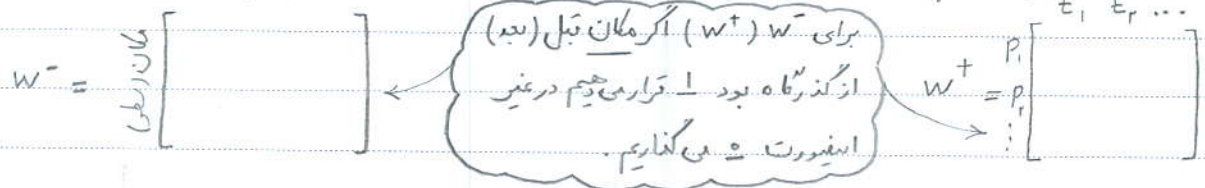 t₁ t₂ ...
برای W⁻ (W⁺) اگر مکان قبل (بعد)
از گذرگاه بود 1 قرار می‌دهیم در غیر
اینصورت 0 می‌گذاریم.
W⁻ =
مکان
W⁺ =
P₁
P₂
⋮